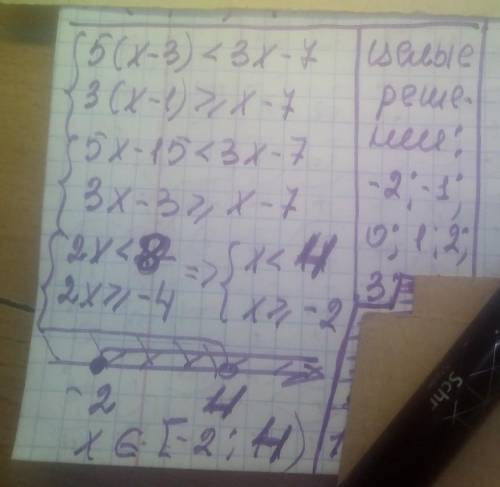 5(x-3) < 3x-7
3(x-1) ⩾ x-7
5x-15 < 3x-7
3x-3 ⩾ x-7
2x < 8 => x < 4
2x ⩾ -4 x ⩾ -2
-2 4
x ∈ [-2; 4)
целые
реше-
нии:
-2; -1;
0; 1; 2;
3
Schr